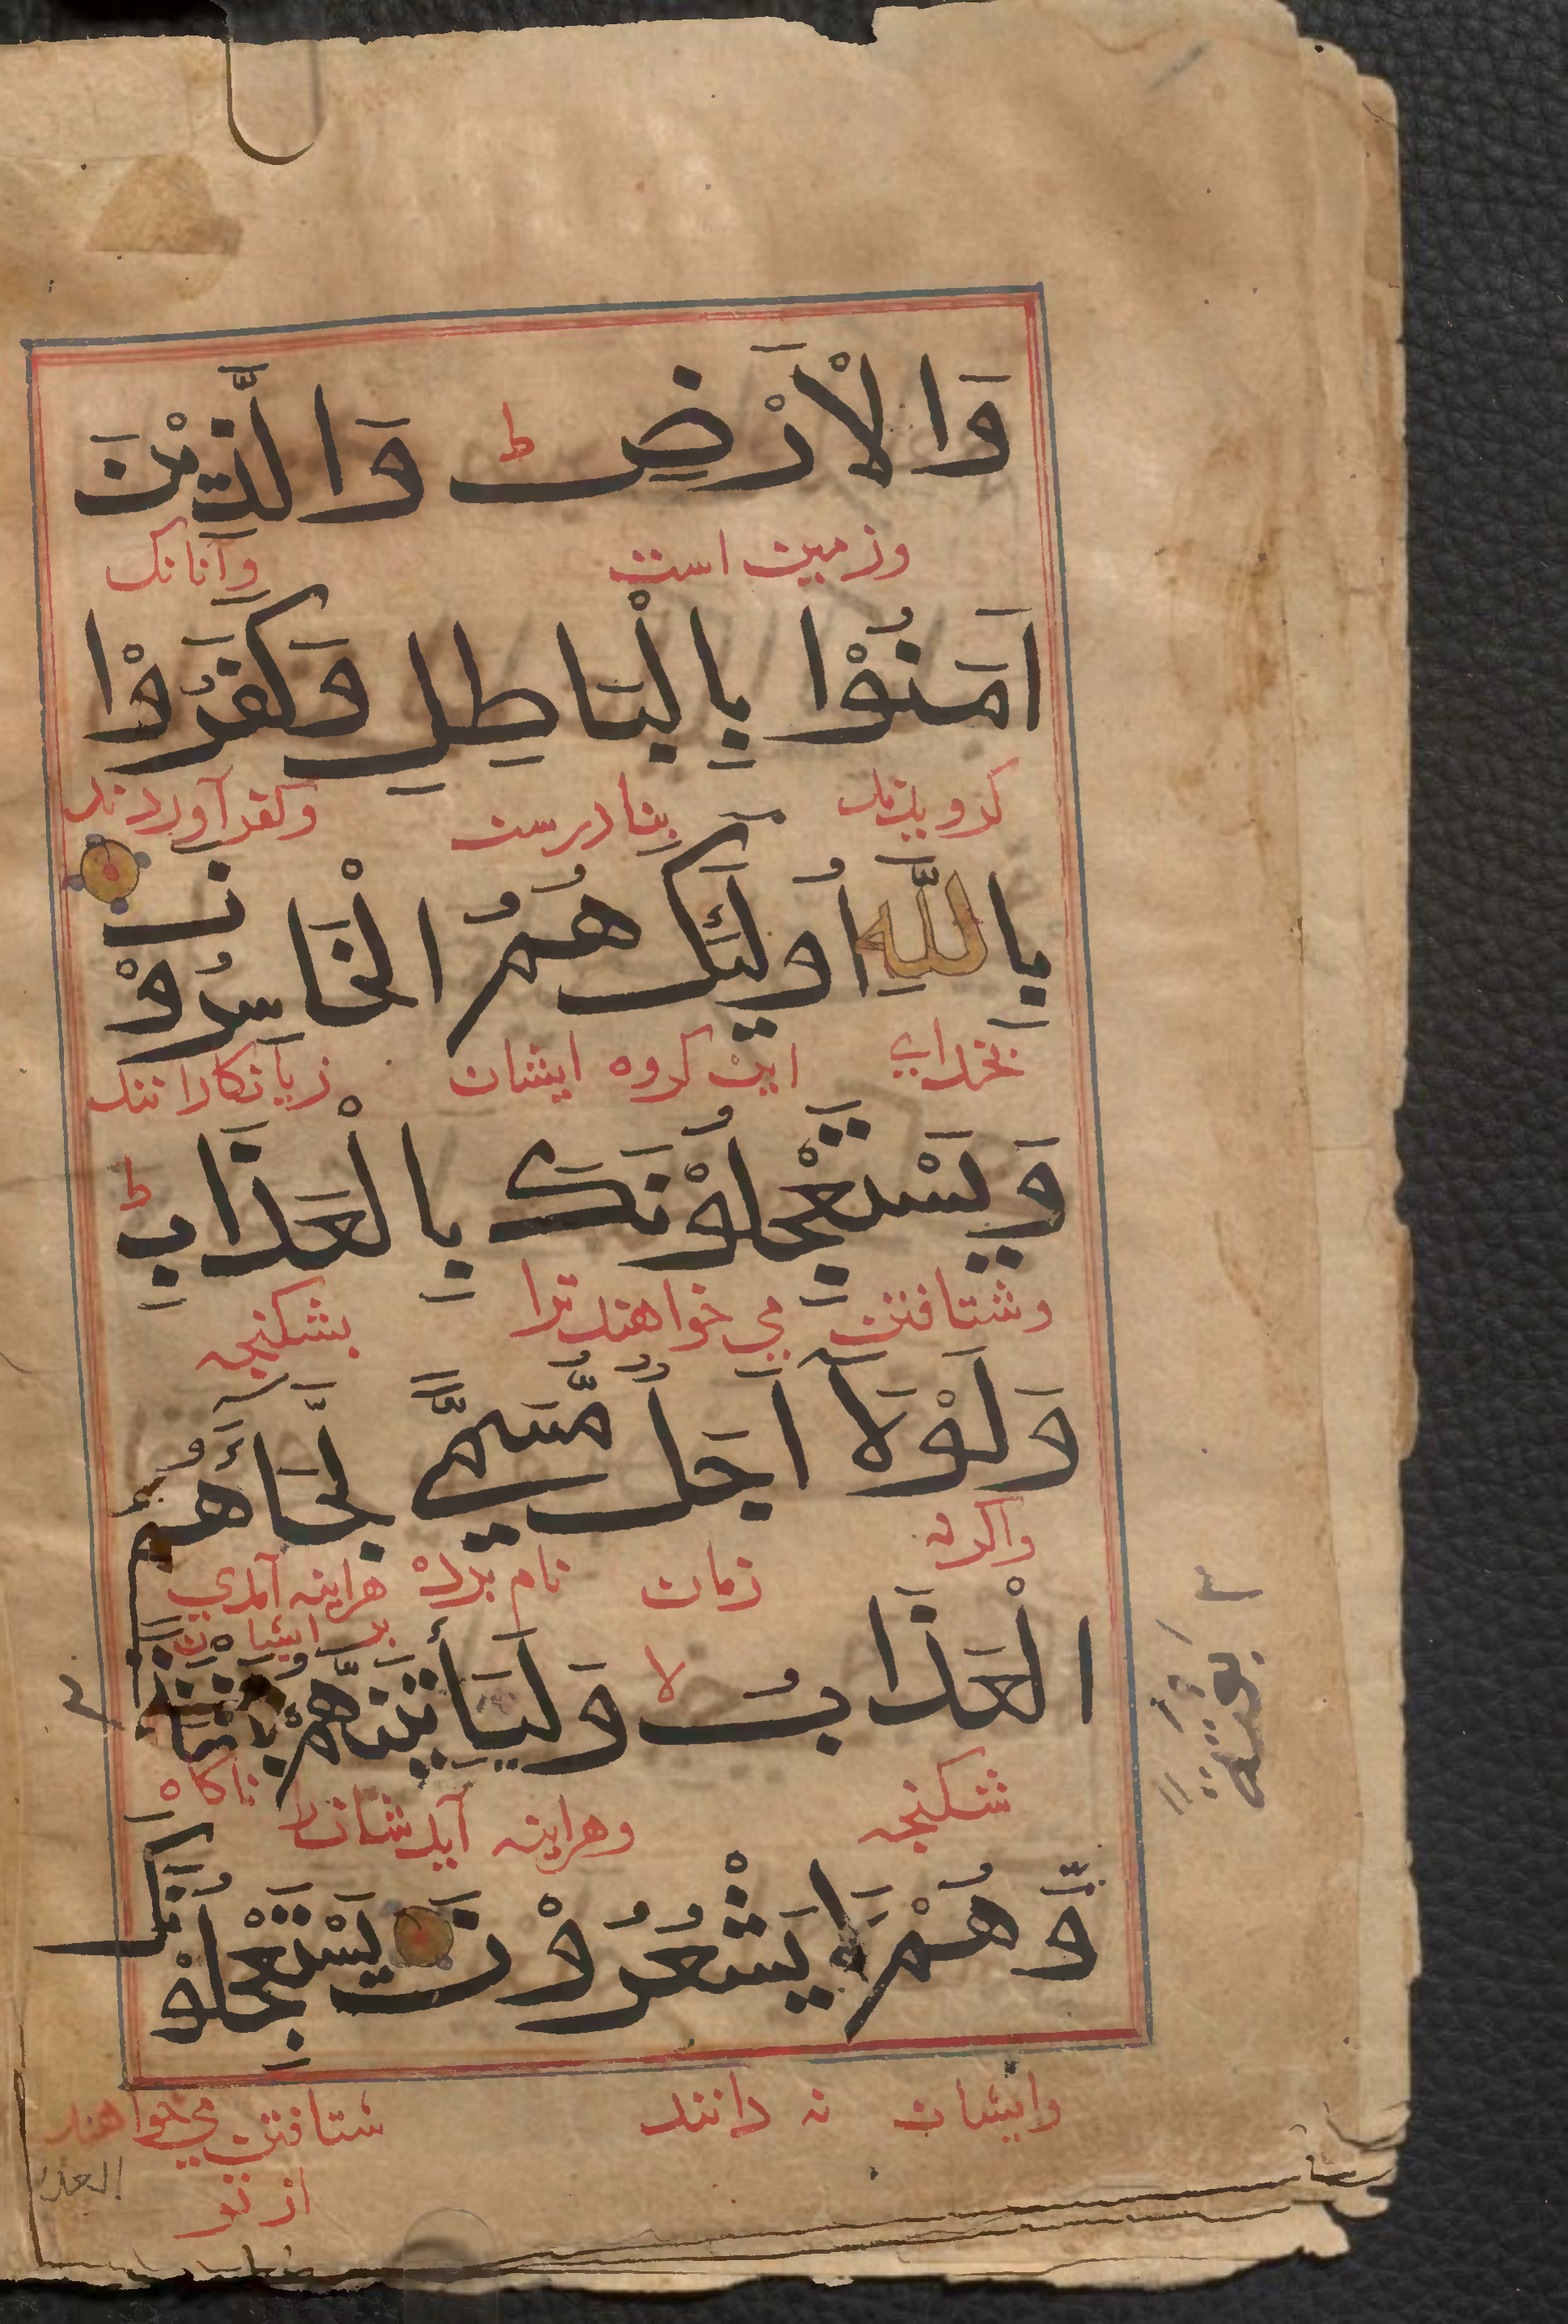 وَالْاَرْضِ ط وَالَّذِيْنَ
وزمین است وآنانک
اٰمَنُوْا بِالْبَاطِلِ وَكَفَرُوْا
کرویدند بنادرست وکفر آوردند
بِاللّٰهِ اُولٰٓئِكَ هُمُ الْخَاسِرُوْنَ
بخدای این کروه ایشان زیانکارانند
وَيَسْتَعْجِلُوْنَكَ بِالْعَذَابِ ط
وشتافتن می خواهند ترا بشکنجه
وَلَوْلَآ اَجَلٌ مُّسَمًّى لَّجَآءَهُمُ
واکرنه زمان نام برده هراینه آمدی
بر ایشان
الْعَذَابُ لا وَلَيَأْتِيَنَّهُمْ
بَغْتَةً
شکنجه وهراینه آید شانرا ناکاه
وَّهُمْ لَا يَشْعُرُوْنَ يَسْتَعْجِلُوْنَكَ
وایشان نه دانند شتافتن می خواهند
از تو